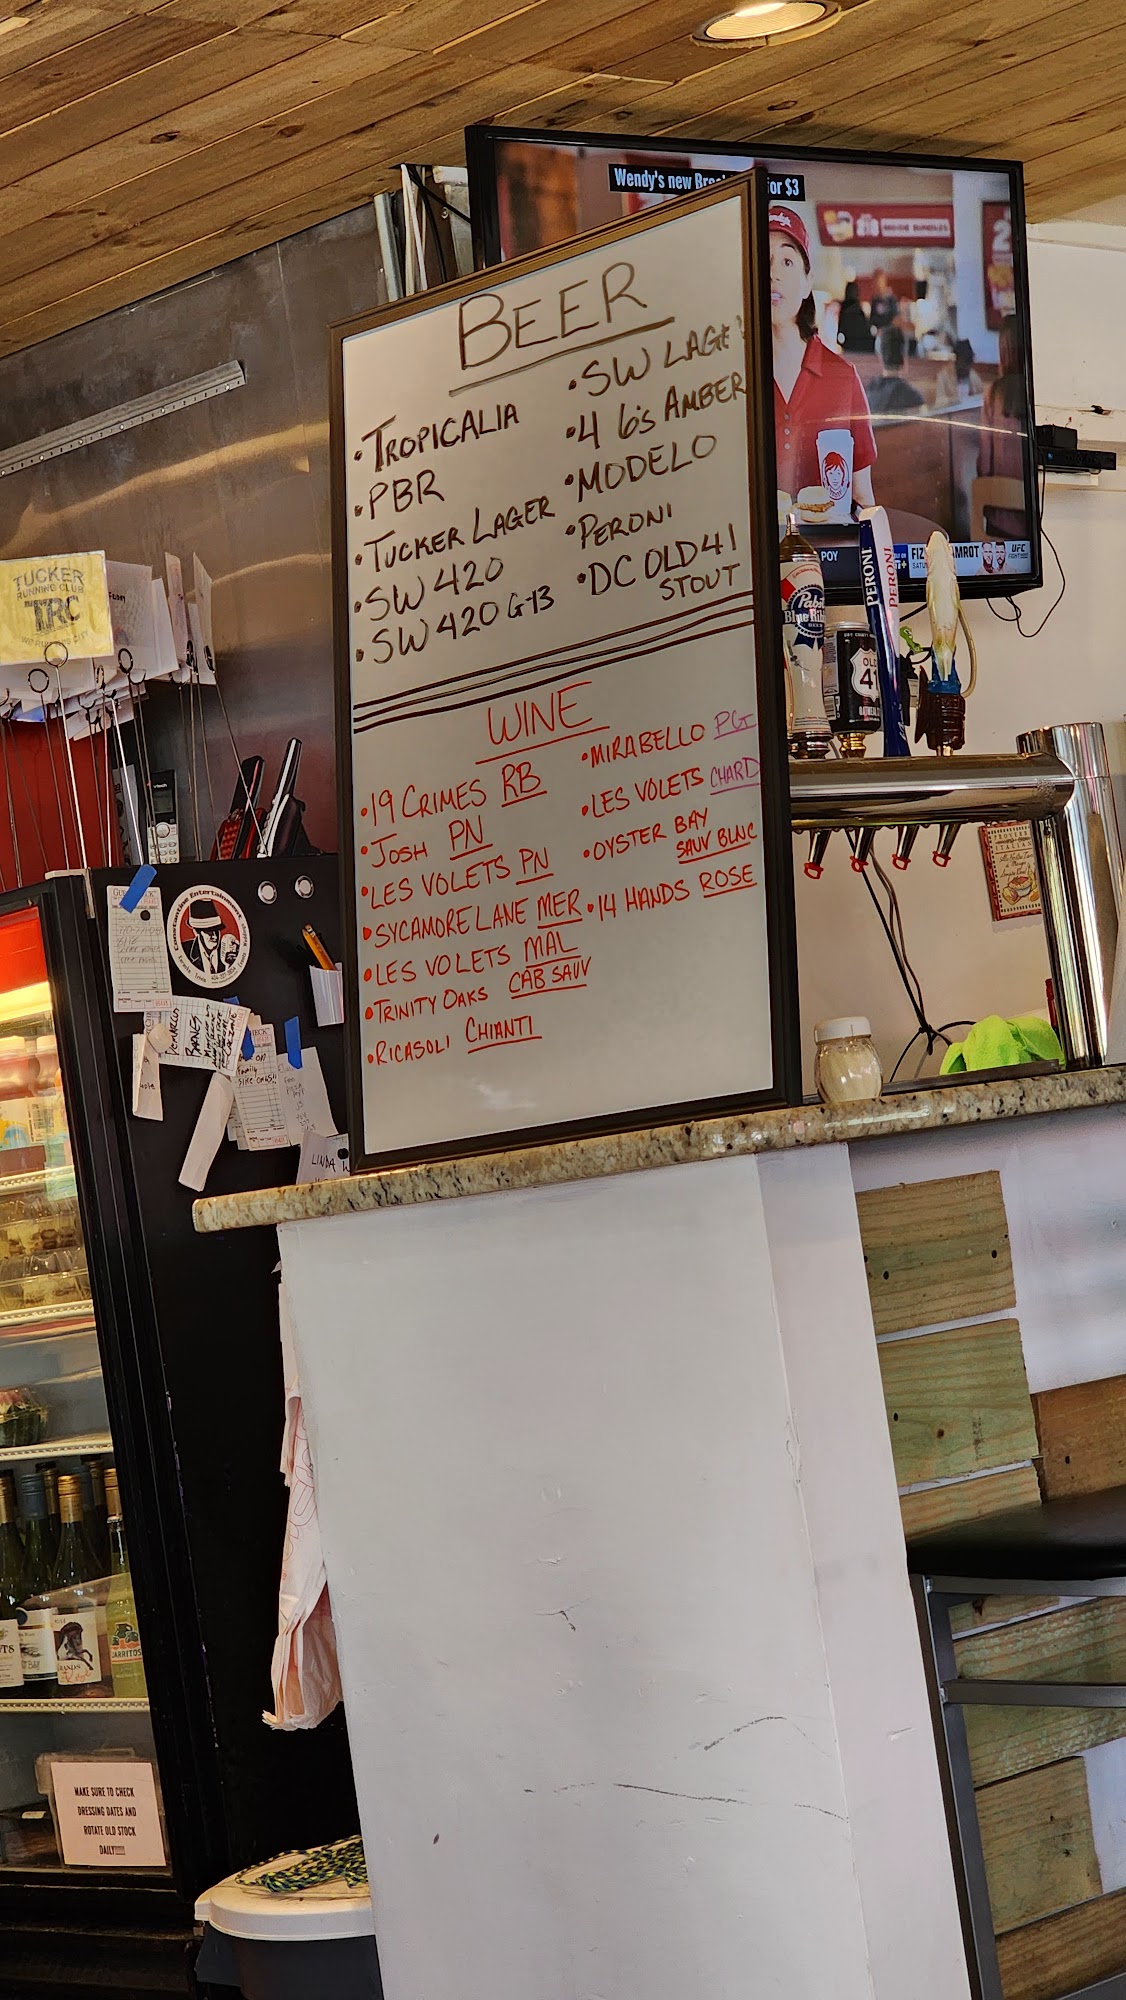 Wendy's new
for $3
BEER
• TROPICALIA
• PBR
• TUCKER LAGER
• SW 420
• SW 420 G-13
• SW LAGER
• 4 6's AMBER
• MODELO
• PERONI
• DC OLD 41
STOUT
WINE
• 19 CRIMES RB
• JOSH PN
• LES VOLETS PN
• SYCAMORE LANE MER
• LES VOLETS MAL
• TRINITY OAKS CAB SAUV
• RICASOLI CHIANTI
• MIRABELLO PG
• LES VOLETS CHARD
• OYSTER BAY
SAUV BLNC
• 14 HANDS ROSE
POY
UFC
PERONI
PERONI
Pabst
Blue Ribbon
OLD
41
TUCKER
RUNNING CLUB
TRC
Constantine Entertainment
DEMARCUS
BARNES
family
LINDA
JARRITOS
MAKE SURE TO CHECK
DRESSING DATES AND
ROTATE OLD STOCK
DAILY!!!!!